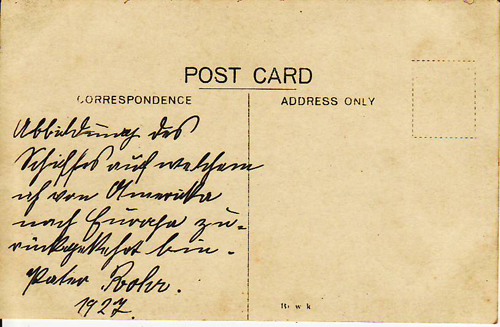 POST CARD
CORRESPONDENCE
ADDRESS ONLY
Abbildung des
Schiffes auf welchem
ich von Amerika
nach Europa zu-
rückgekehrt bin.
Pater Rohr.
1927.